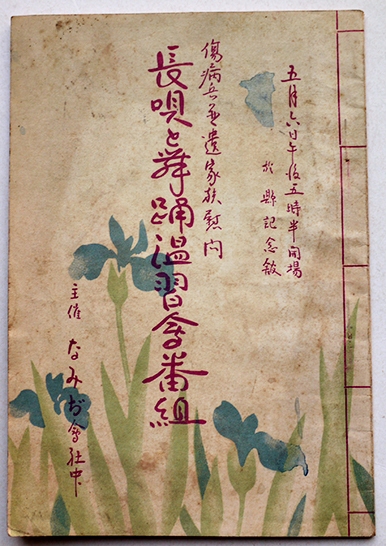 五月六日午後五時半開場
於縣記念館
傷病兵並遺家族慰問
長唄と舞踊温習會番組
主催 なみぢ會社中